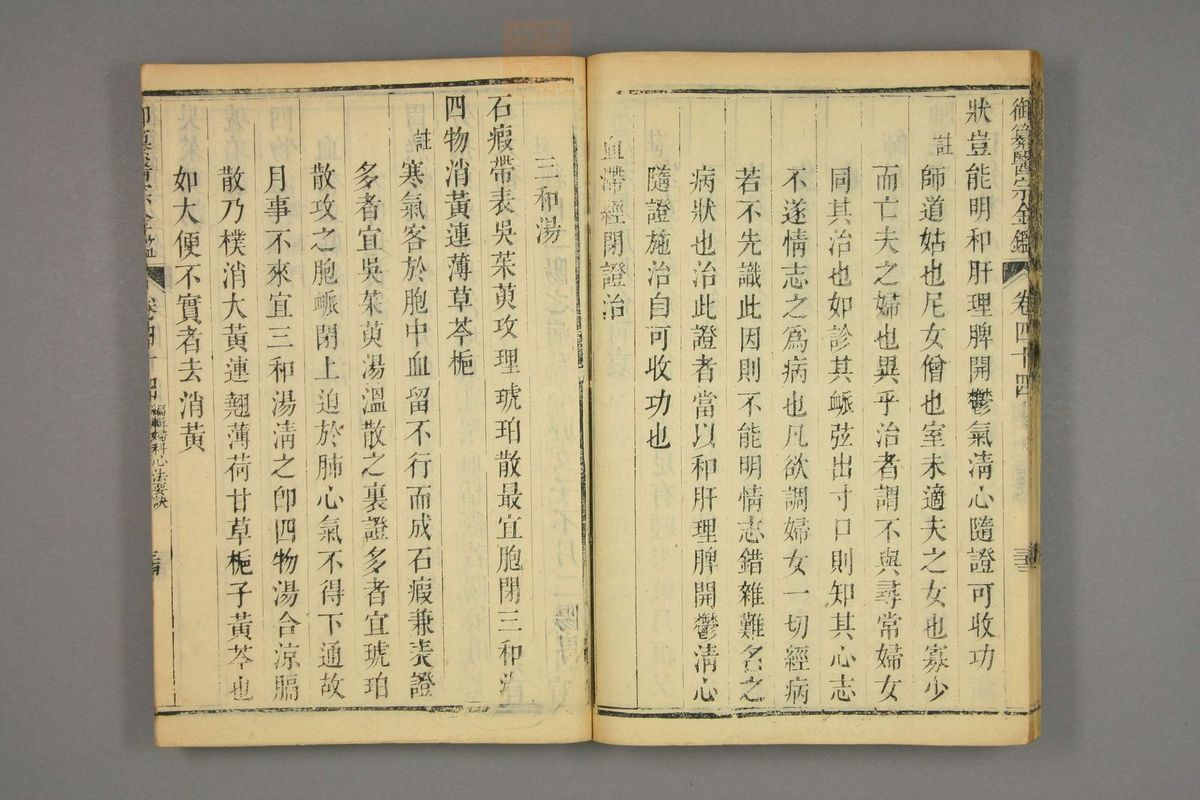 御纂醫宗金鑑 卷四十四
狀豈能明和肝理脾開鬱氣淸心隨證可收功
註師道姑也尼女僧也室未適夫之女也寡少
而亡夫之婦也異乎治者謂不與尋常婦女
同其治也如診其𧖴弦出寸口則知其心志
不遂情志之爲病也凡欲調婦女一切經病
若不先識此因則不能明情志錯雜難名之
病狀也治此證者當以和肝理脾開鬱淸心
隨證施治自可收功也
血滯經閉證治
三和湯
石瘕帶表吳茱萸攻理琥珀散最宜胞閉三和湯
四物消黃連薄草芩梔
註寒氣客於胞中血留不行而成石瘕兼表證
多者宜吳茱萸湯溫散之裏證多者宜琥珀
散攻之胞𧖴閉上迫於肺心氣不得下通故
月事不來宜三和湯淸之卽四物湯合涼膈
散乃樸消大黃連翹薄荷甘草梔子黃芩也
如大便不實者去消黃
卷四十四 編輯婦科心法要訣